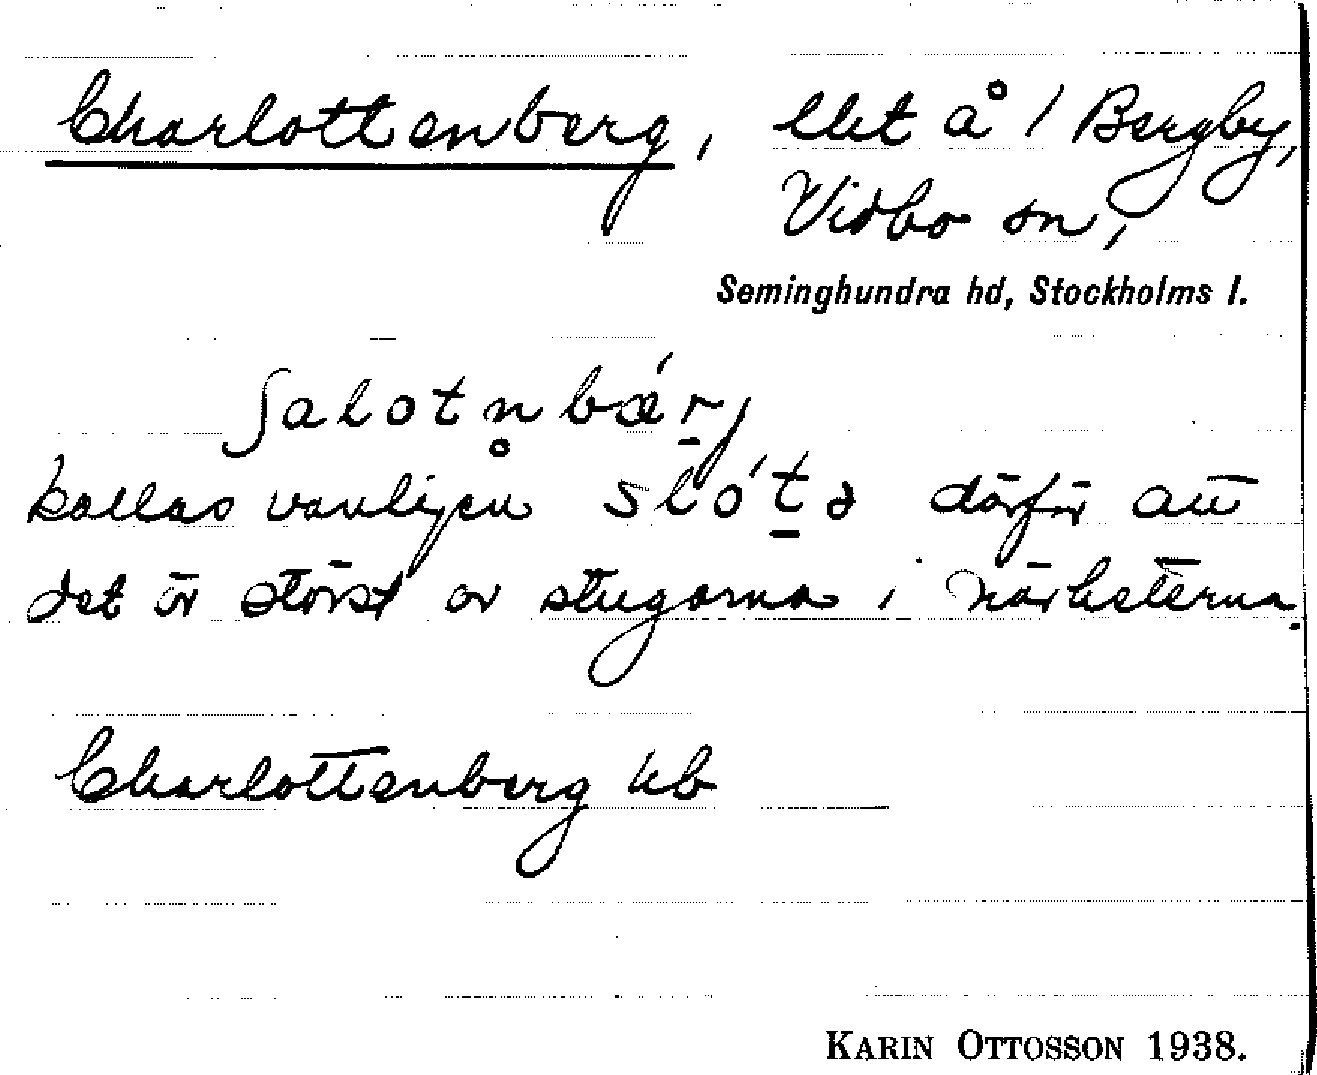 Charlottenberg, llet å 1 Bergby,
Vidbo sn,
Seminghundra hd, Stockholms l.
ʃalotn̥bær̠j
kallas vanligen slót̠ə därför att
det är störst av stugorna i närheterna.
Charlottenberg hb
KARIN OTTOSSON 1938.